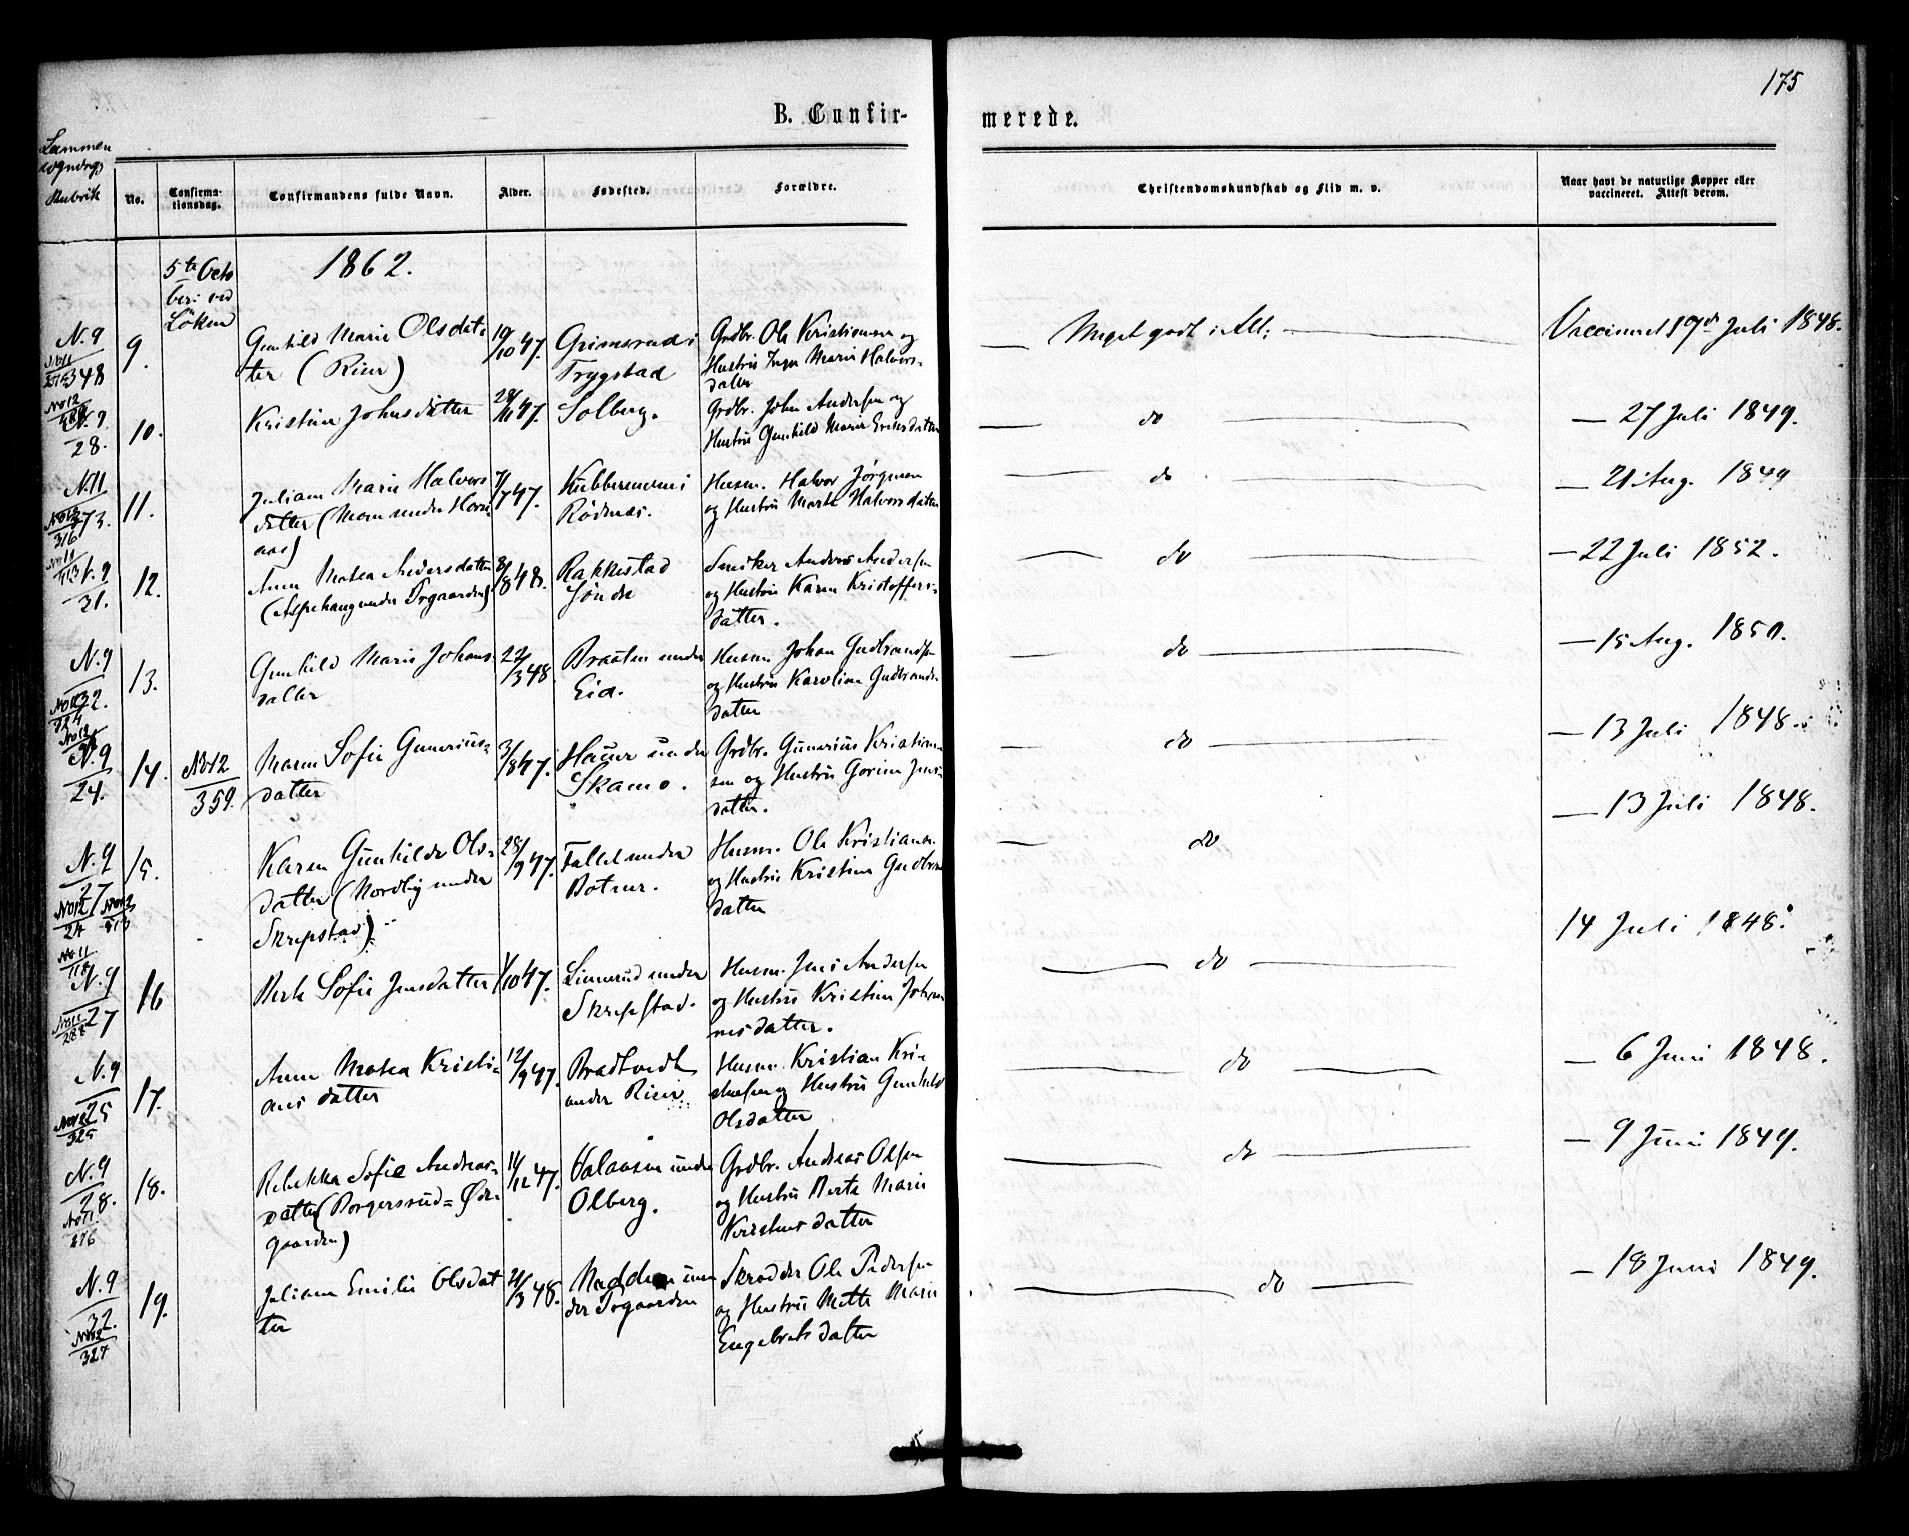 175
B. Confir-
merede.
Sammen
Rubrik
No.
Confirma-
tionsdag.
Confirmandens fulde Navn.
Alder.
Fødested.
Forældre.
Christendomskundskab og Flid m. v.
Naar havt de naturlige Kopper eller
vaccineret. Attest derom.
5te Octo
ber: ved
Löken
1862.
N. 9
348
9.
Gunhild Marie Olsdat-
ter (Rier)
19/10 47.
Grimsrud i
Trygstad
Grdbr. Ole Kristiansen og
Hustru Inger Marie Halvors-
datter
Meget godt i Alt.
Vaccineret 19de Juli 1848.
28.
10.
Kristine Johnsdatter
47.
Solberg.
Grdbr. John Andersen og
Hustru Gunhild Marie Eriksdatter
do
— 27 Juli 1849.
N. 11
No 12
316
11.
Juliane Marie Halvors
datter (Moen under Horn-
aas)
7/7 47.
Kubberemmen i
Rödnæs.
Husm. Halvor Jørgensen
og Hustru Marte Halvorsdatter
do
— 21 Aug. 1849
N. 9
31.
12.
Anne Mathea Andersdatter
(Aspehaug under Prgaarden)
8/8 48.
Rakkestad
Sönde
Smsker Anders Andersen
og Hustru Karen Kristoffers-
datter.
do
— 22 Juli 1852.
N. 9
32.
13.
Gunhild Marie Johans-
datter
22/3 48
Braaten under
Eid.
Husm. Johan Gudbrandsen
og Hustru Karoline Gudbrands-
datter
do
— 15 Aug. 1850.
N. 9
24.
14.
No 12
359.
Maren Sofie Gunerius-
datter
3/8 47.
Hauer under
Skamo.
Grdbr. Gunerius Kristian-
sen og Hustru Gorine Jens-
datter.
do
— 13 Juli 1848.
N. 9
27
No 12
24
15.
Karen Gunhilde Ols-
datter (Nordby under
Skrepstad)
28/9 47.
Fallet under
Botner.
Husm. Ole Kristiansen
og Hustru Kristine Gudbrands
datter
do
— 13 Juli 1848.
N. 9
27
No 11
288
16
Berte Sofie Jensdatter
1/10 47.
Linnerud under
Skrepstad.
Husm. Jens Andersen
og Hustru Kristine Johan-
nesdatter.
do
14 Juli 1848.
N. 9
25
325
17.
Anne Mathea Kristi-
ans datter
12/9 47.
Bradtvedt
under Rier
Husm. Kristian Kri-
stiansen og Hustru Gunhild
Olsdatter
do
— 6 Juni 1848.
N. 9
28.
No 11.
18.
Rebekka Sofie Andreas-
datter (Borgersrud = Øde-
gaarden)
47.
under
Olberg.
Grdbr. Andreas Olsen
og Hustru Berte Marie
Kristiansdatter
do
— 9 Juni 1849.
N. 9
32.
No 12
327
19.
Juliane Emilie Olsdat
ter
21/3 48.
un-
der Prgaarden
Skrædder Ole Pedersen
og Hustru Mette Marie
Engebretsdatter
do
— 18 Juni 1849.